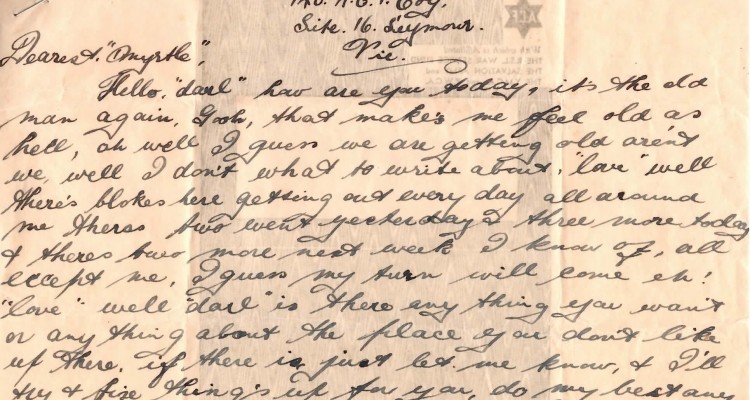 Site. 16. Seymour.
Vic.
Dearest. "Myrtle",
Hello, "darl" how are you today, it's the old
man again, Gosh, that makes me feel old as
hell, oh well I guess we are getting old aren't
we, well I don't what to write about, "love" well
there's blokes here getting out every day all around
me theres two went yesterday & three more today
& theres two more next week I know of, all
except me, I guess my turn will come eh!
"love" well "darl" is there any thing you want
or any thing about the place you don't like
up there, if there is just let me know, & I'll
try & fix things up for you, do my best any
ACF
THE SALVATION